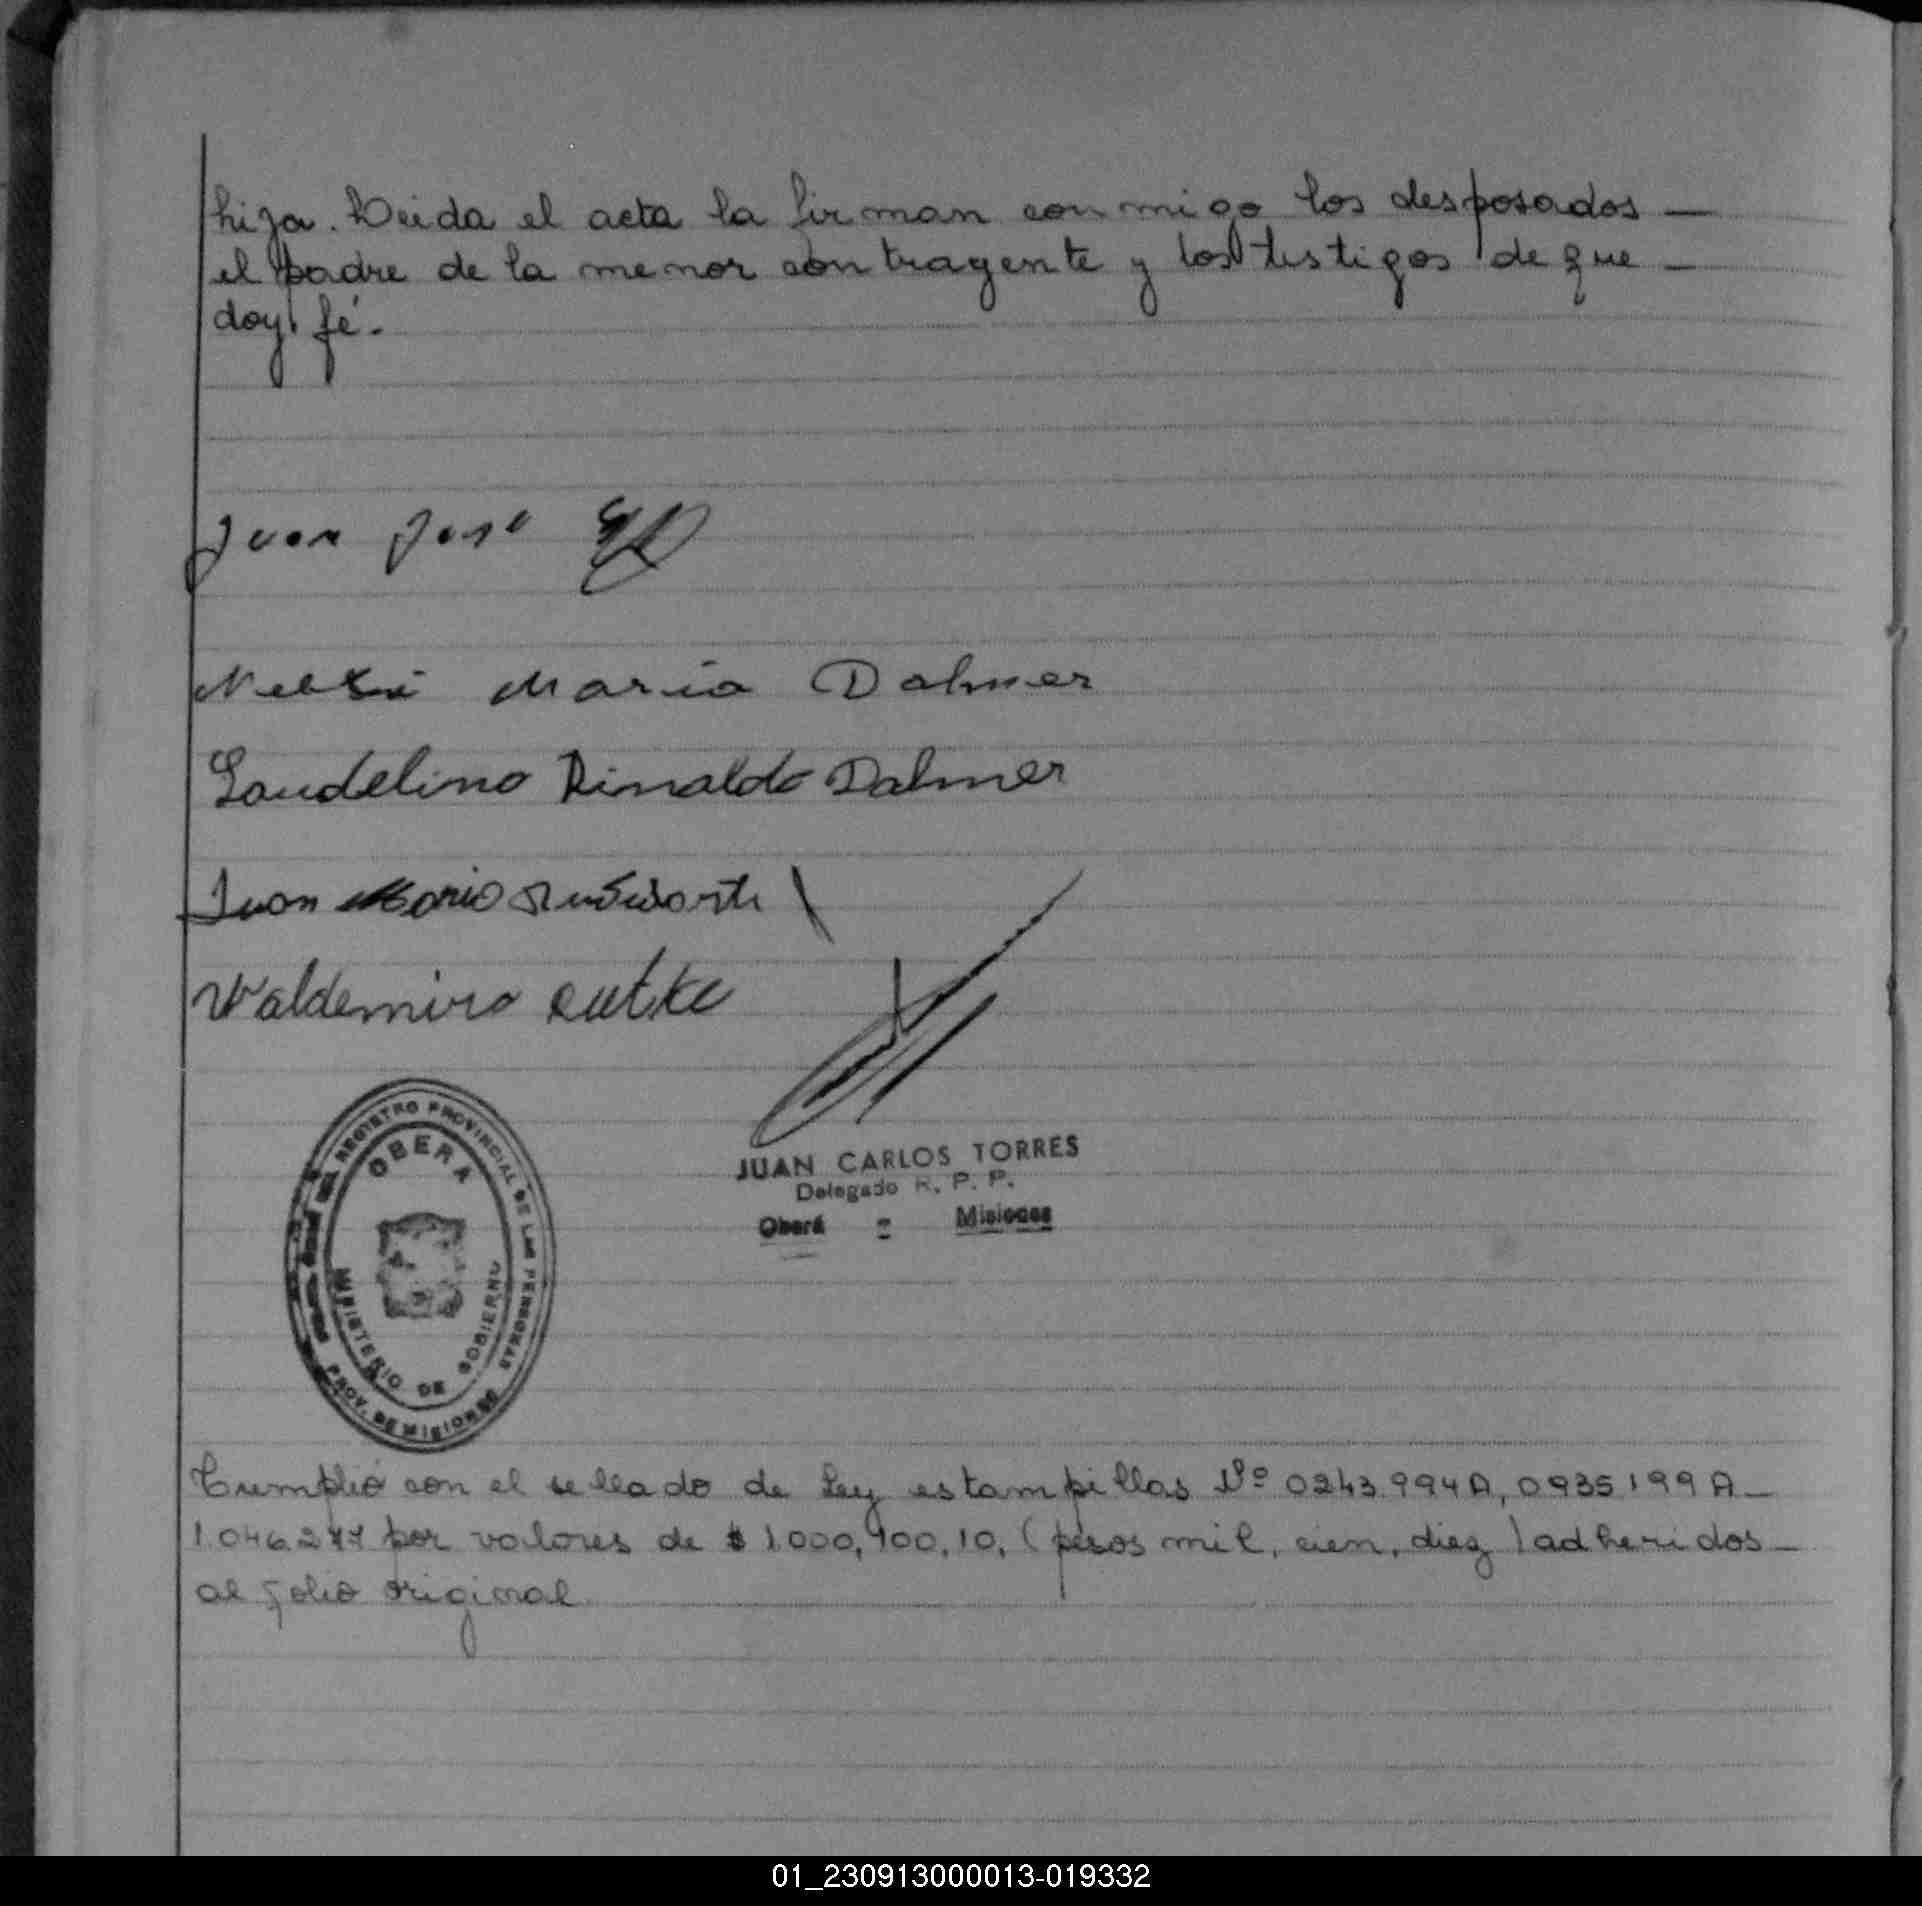 hija. Leida el acta la firman conmigo los desposados —
el padre de la menor contrayente y los testigos de que —
doy fé.
Juan José
Maria Dalmer
Laudelino Rinaldo Dalmer
Juan Mario
Waldemiro Rutke
REGISTRO PROVINCIAL DE LAS PERSONAS
OBERA
MINISTERIO DE GOBIERNO
PROV. DE MISIONES
JUAN CARLOS TORRES
Delegado R. P. P.
Oberá - Misiones
Cumplió con el sellado de Ley estampillas Nº 0243994A, 0935199A —
1.046.277 por valores de $ 1.000, 100, 10, (pesos mil, cien, diez) adheridos —
al folio original.
01_230913000013-019332